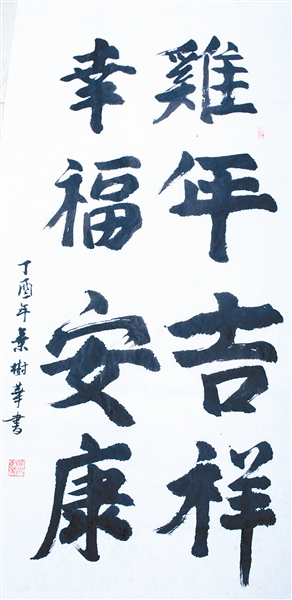 雞年吉祥
幸福安康
丁酉年葉樹華書